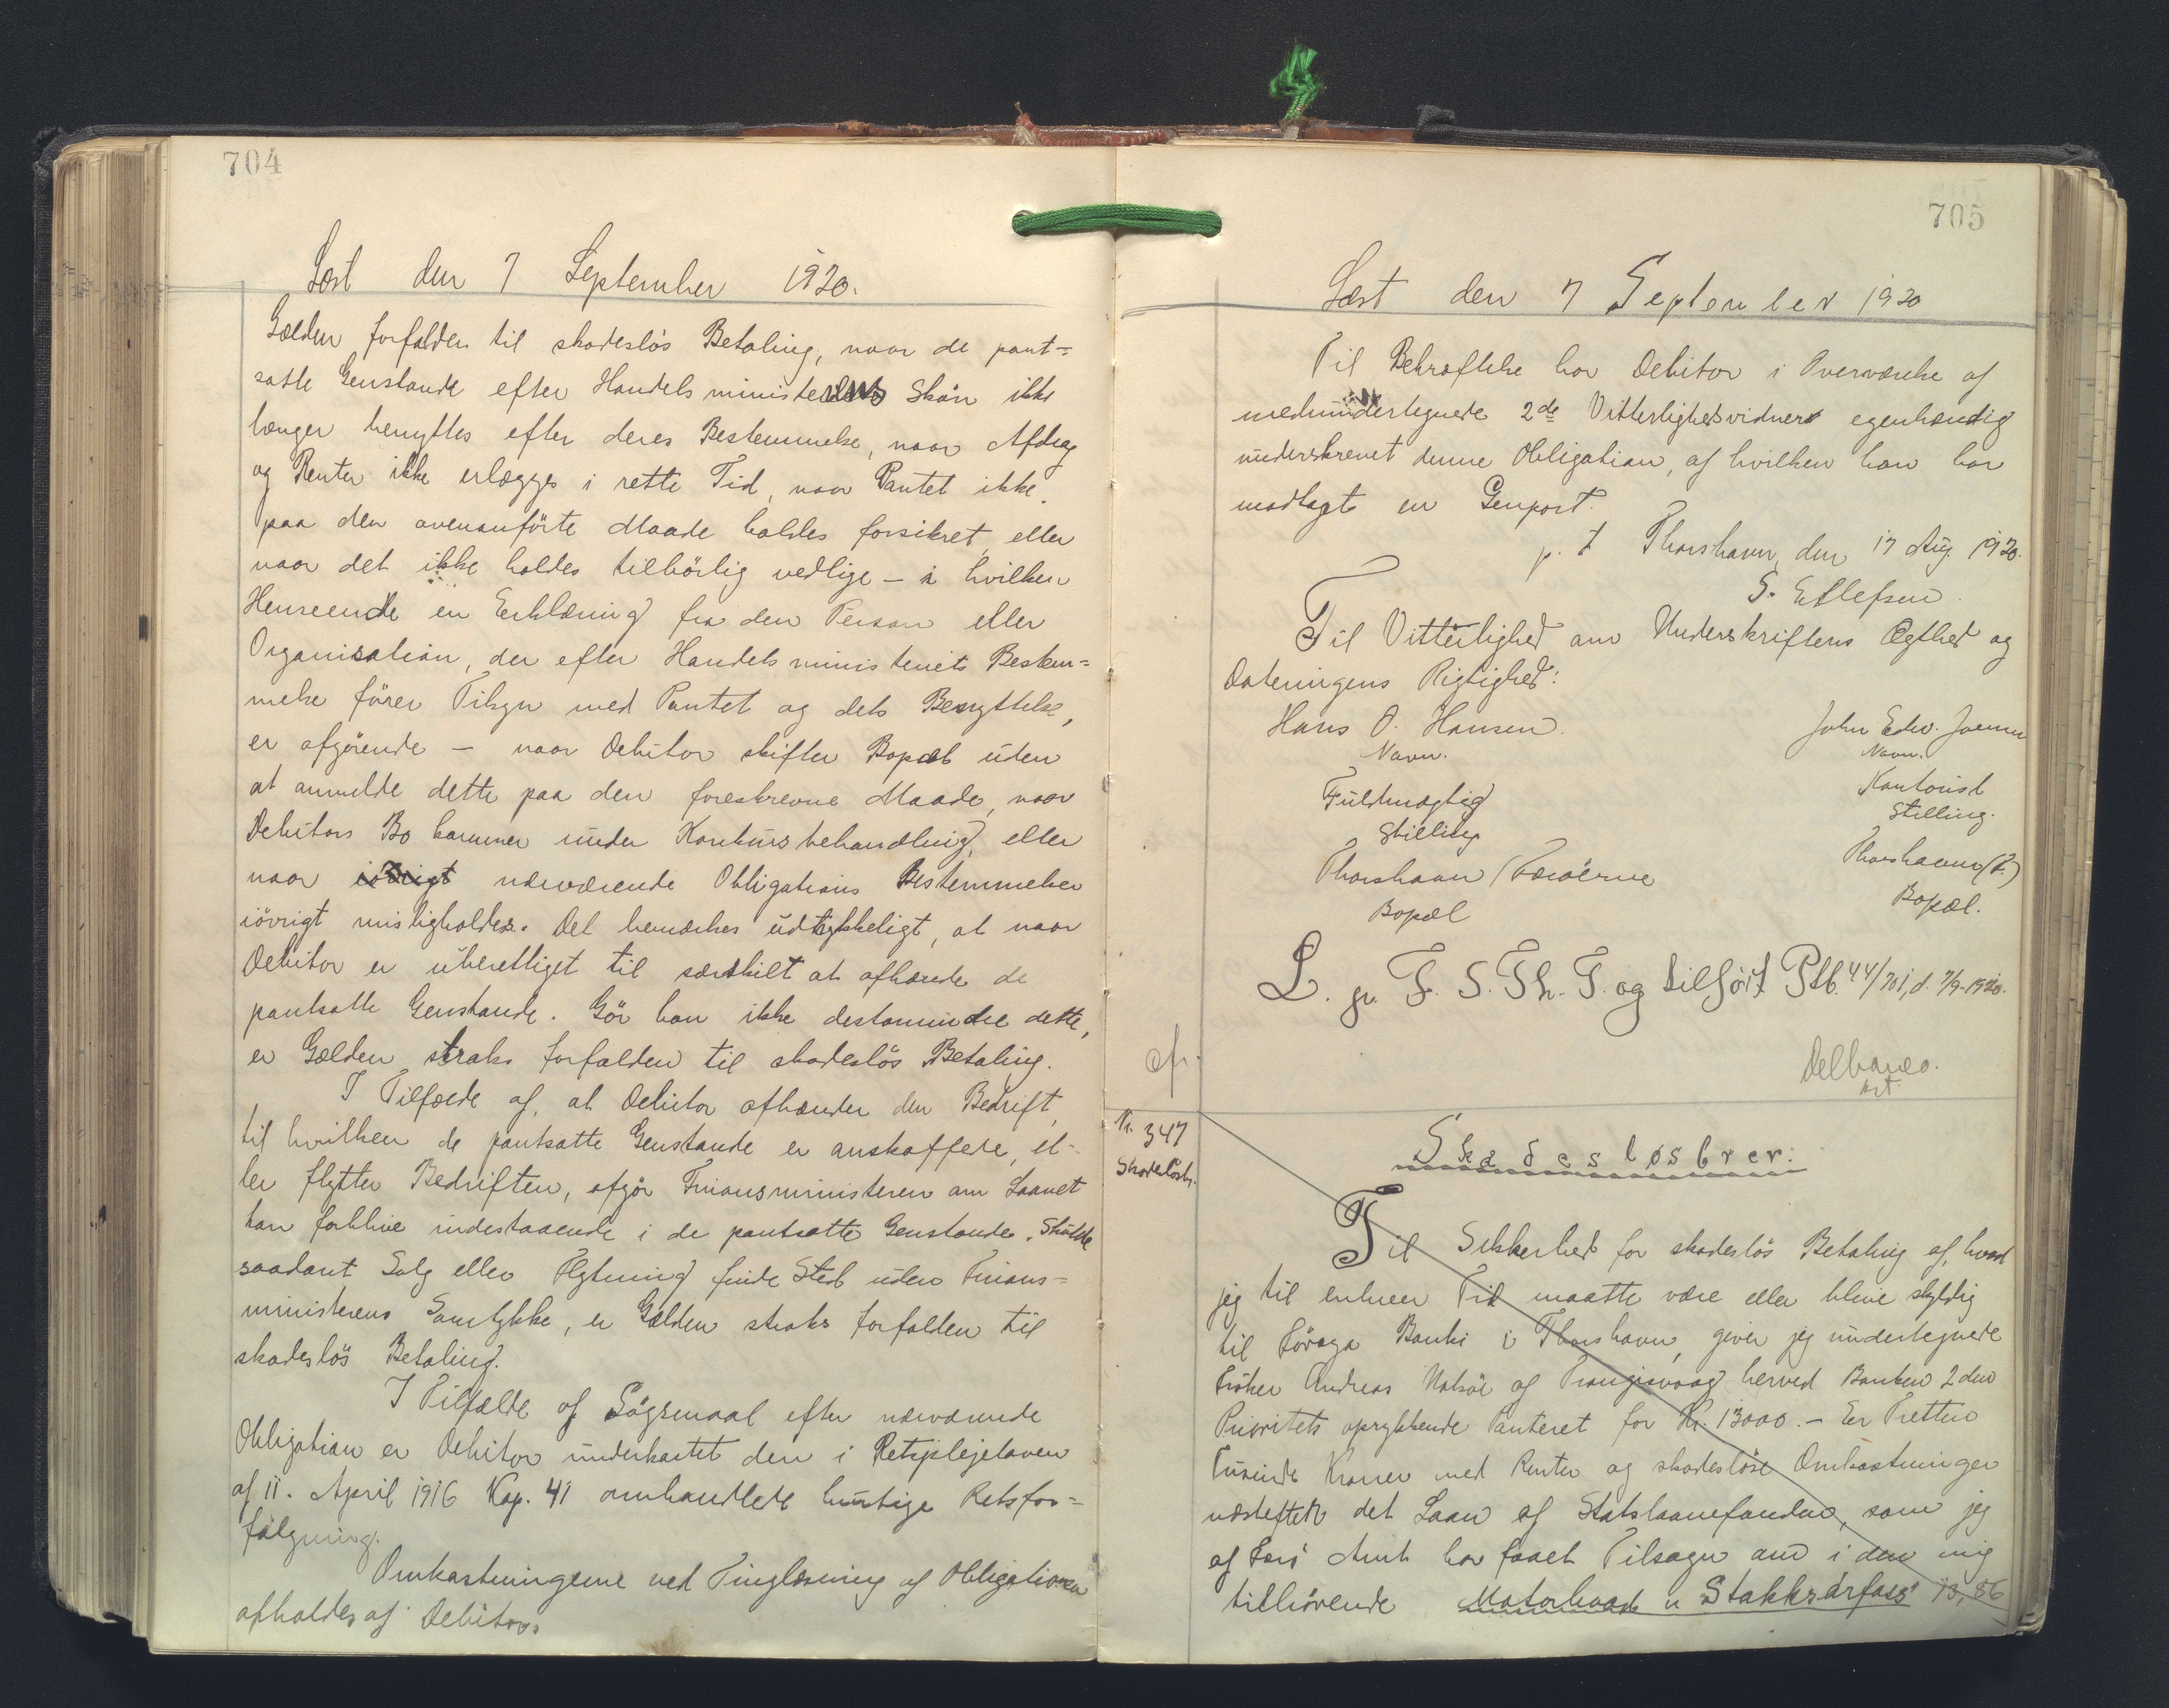 704
Læst den 7 September 1920.
Gælden forfalder til skadeslös Betaling, naar de pant=
satte Genstande efter Handelsministerens Skön ikke
længer benyttes efter deres Bestemmelse, naar Afdrag
og Renter ikke erlægges i rette Tid, naar Pantet ikke
paa den ovenanförte Maade holdes forsikret, eller
naar det ikke holdes tilbörlig vedlige - i hvilken
Henseende en Erklæring fra den Person eller
Organisation, der efter Handelsministeriets Bestem=
melse förer Tilsyn med Pantet og dets Benyttelse,
er afgörende - naar Debitor skifter Bopæl uden
at anmelde dette paa den foreskrevne Maade, naar
Debitors Bo kommer under Konkursbehandling, eller
naar iövrigt nærværende Obligations Bestemmelser
iövrigt misligholdes. Det bemærkes udtrykkeligt, at naar
Debitor er uberettiget til særskilt at afhænde de
pantsatte Genstande. Gör han ikke destomindre dette,
er Gælden straks forfalden til skadeslös Betaling.
I Tilfælde af, at Debitor afhænder den Bedrift,
til hvilken de pantsatte Genstande er anskaffede, el-
ler flytter Bedriften, afgör Finansministeren om Laanet
kan forblive indestaaende i de pantsatte Genstande. Skulde
saadant Salg eller Flytning finde Sted uden Finans=
ministerens Samtykke, er Gælden straks forfalden til
skadeslös Betaling.
I Tilfælde af Sögsmaal efter nærværende
Obligation er Debitor underkastet den i Retsplejeloven
af 11. April 1916 Kap. 41 omhandlede hurtige Retsfor=
fölgning.
Omkostningerne ved Tinglæsning af Obligationen
afholdes af Debitor.
705
Læst den 7 September 1920
Til Bekræftelse har Debitor i Overværelse af
medundertegnede 2de Vitterlighedsvidner egenhændig
underskrevet denne Obligation, af hvilken han har
modtaget en Genpart.
p. t Thorshavn, den 17 Aug. 1920.
S. Ellefsen.
Til Vitterlighed om Underskriftens Ægthed og
Dateringens Rigtighed:
Hans O. Hansen. John Edw. Joensen
Navn. Navn.
Fuldmægtig Kontorist
Stilling Stilling.
Thorshavn (Færöerne Thorshavn (F.)
Bopæl Bopæl.
L. p. F. S. Th. F. og tilfört Ptb. 44/701, d. 7/9-1920.
afr.
Delbanco.
kst.
Nr. 347
Skadeslösb.
Skadeslösbrev:
Til Sikkerhed for skadeslös Betaling af, hvad
jeg til enhver Tid maatte være eller blive skyldig
til Föroya Banki i Thorshavn, giver jeg undertegnede
Fisker Andreas Holsöe af Trangisvaag herved Banken 2den
Prioritets oprykkende Panteret for Kr. 13000.- Er Tretten
Tusinde Kroner med Renter og skadeslöse Omkostninger
næstefter det Laan af Statslaanefonden, som jeg
af Færö Amt har faaet Tilsagn om i den mig
tilhörende Motorbaad "Stakksárfoss" 13,86